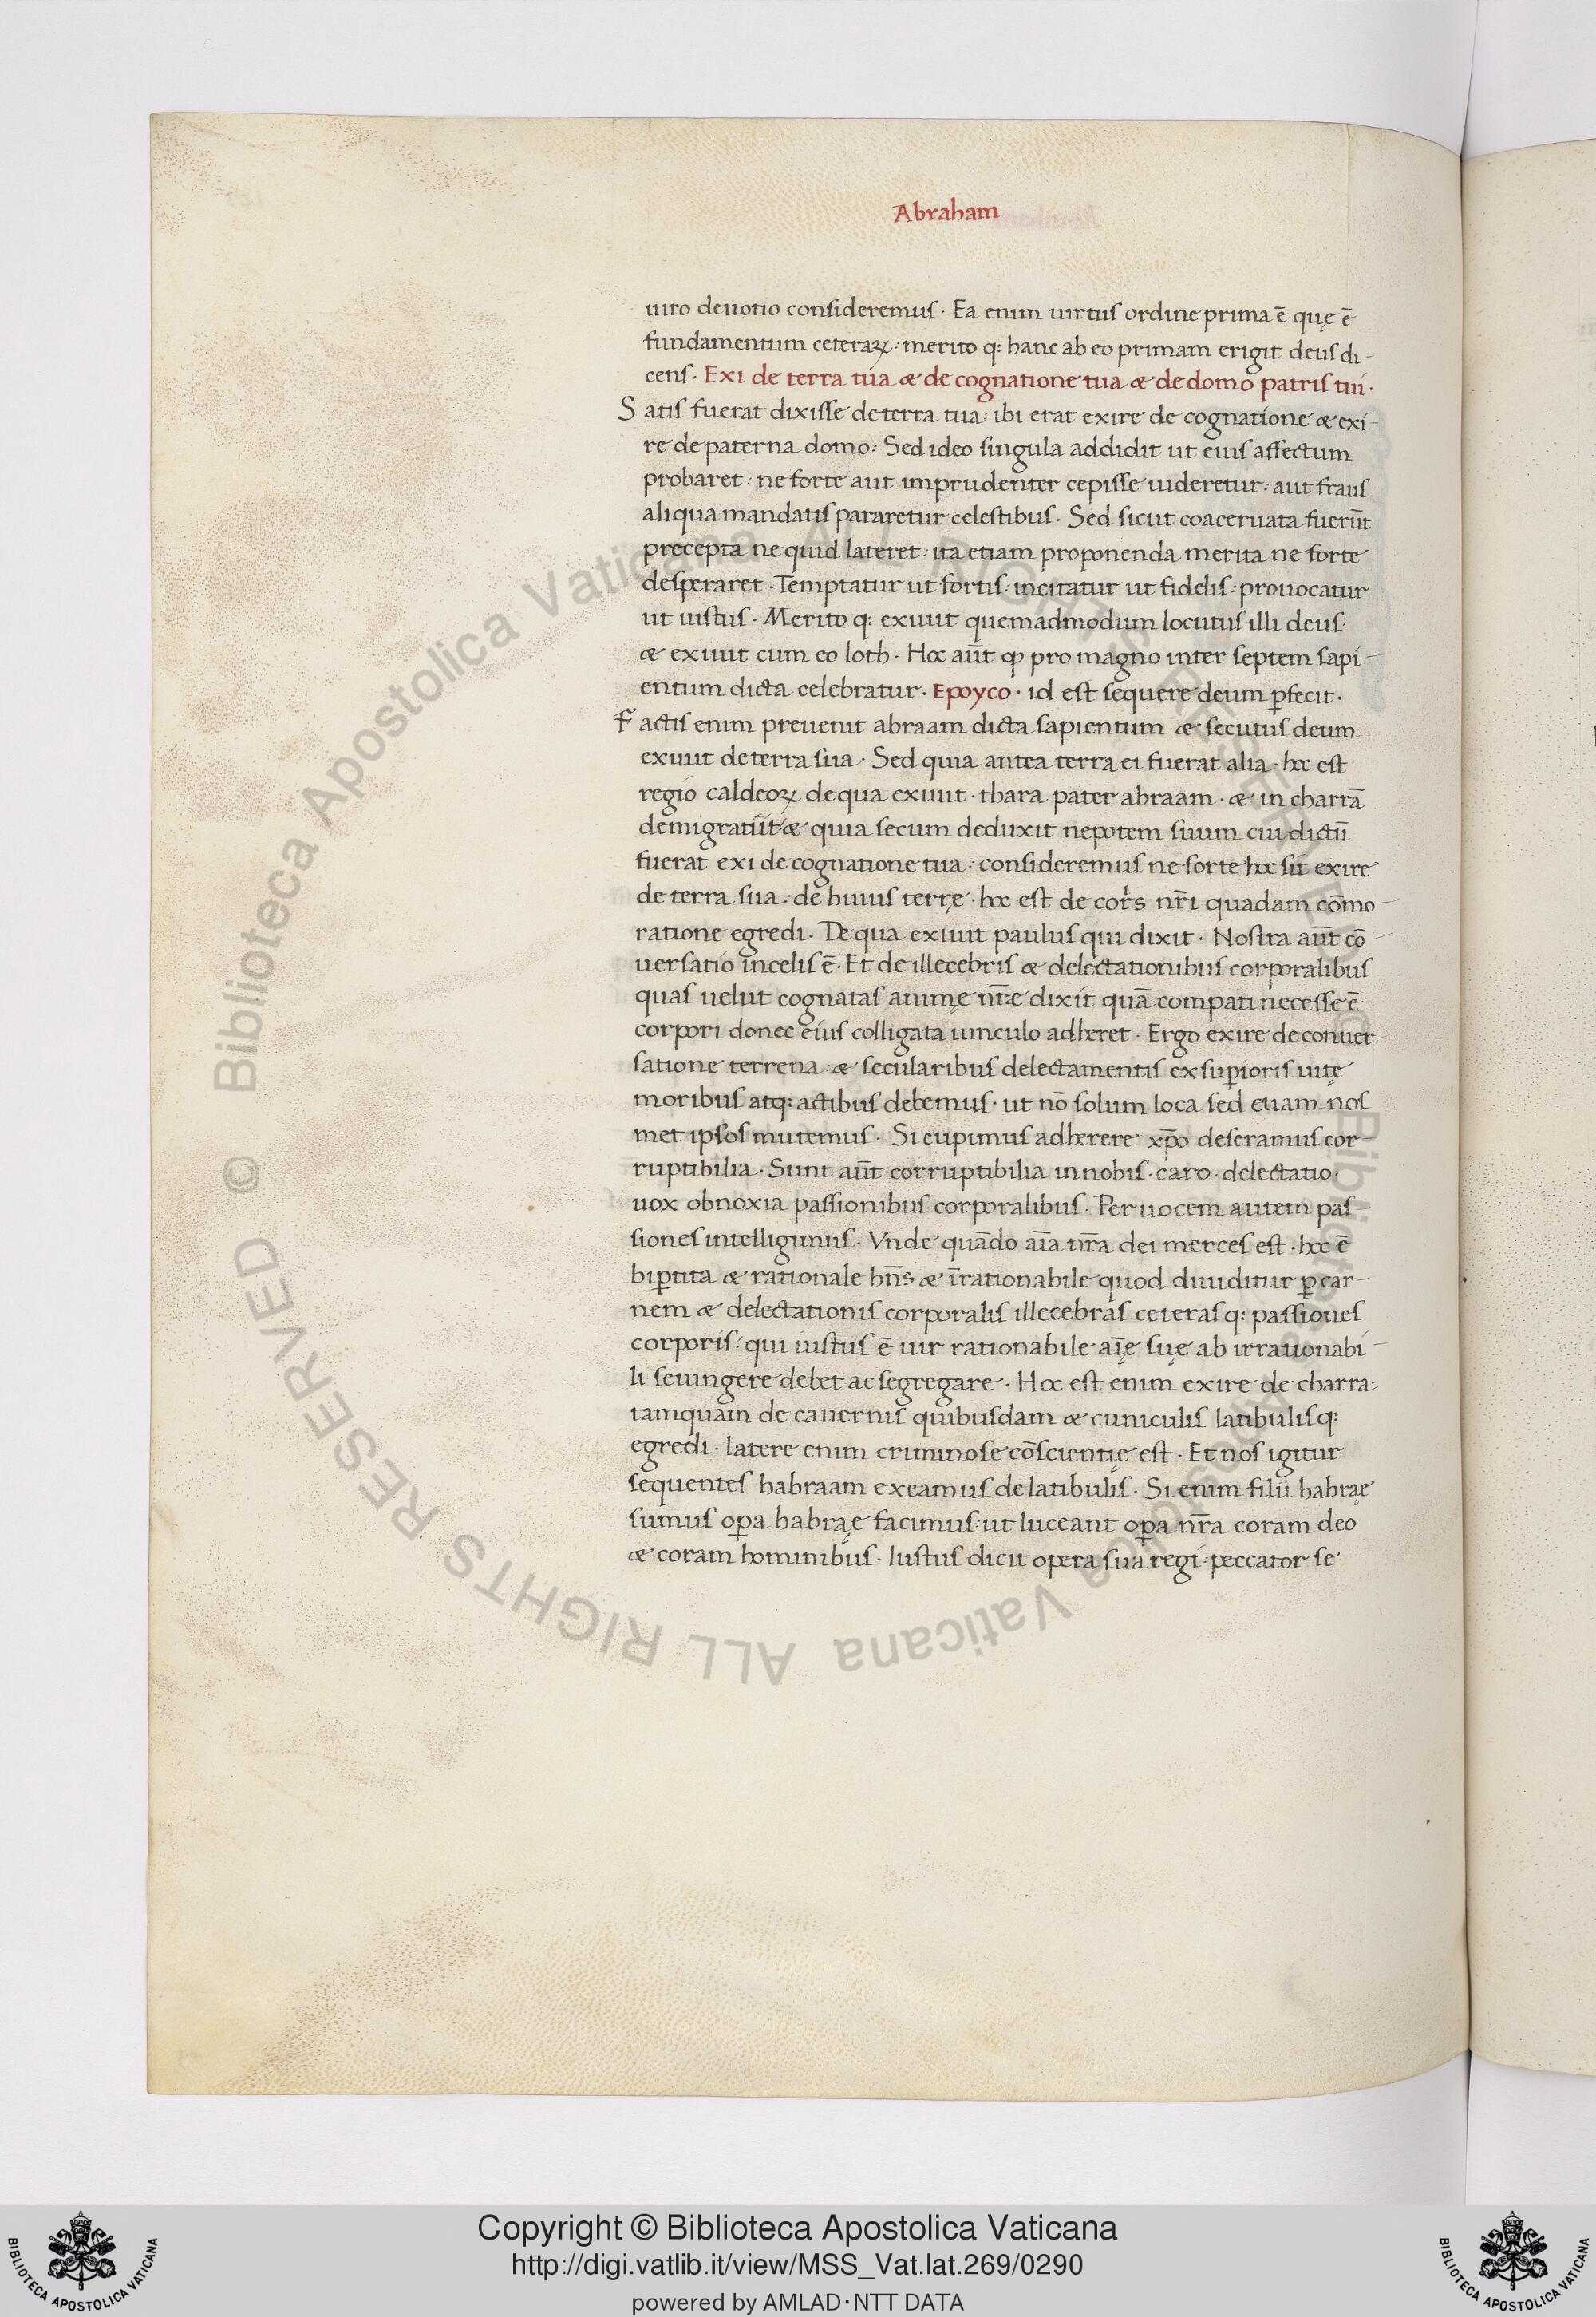 Abraham
uiro deuotio consideremus · Ea enim uirtus ordine prima ē quę ē
fundamentum ceteraꝝ : merito q: hanc ab eo primam erigit deus di-
cens · Exi de terra tua & de cognatione tua & de domo patris tui ·
Satis fuerat dixisse de terra tua : ibi erat exire de cognatione & exi-
re de paterna domo : Sed ideo singula addidit ut eius affectum
probaret : ne forte aut imprudenter cepisse uideretur : aut fraus
aliqua mandatis pararetur celestibus · Sed sicut coaceruata fuerūt
precepta ne quid lateret : ita etiam proponenda merita ne forte
desperaret · Temptatur ut fortis : incitatur ut fidelis : prouocatur
ut iustus · Merito q: exiuit quemadmodum locutus illi deus ·
& exiuit cum eo loth · Hoc aūt ꝙ pro magno inter septem sapi-
entum dicta celebratur · Epoyco · id est sequere deum ꝑfecit ·
Factis enim preuenit abraam dicta sapientum & secutus deum
exiuit de terra sua · Sed quia antea terra ei fuerat alia · hoc est
regio caldeoꝝ de qua exiuit · thara pater abraam · & in charrā
demigrauit & quia secum deduxit nepotem suum cui dictū
fuerat exi de cognatione tua : consideremus ne forte hoc sit exire
de terra sua : de huius terrę · hoc est de cor̄s nr̄i quadam cōmo-
ratione egredi · De qua exiuit paulus qui dixit · Nostra aūt cō-
uersatio in celis ē · Et de illecebris & delectationibus corporalibus
quas uelut cognatas animę nr̄e dixit quā compati necesse ē
corpori donec eius colligata uinculo adheret · Ergo exire de conuer-
satione terrena : & secularibus delectamentis exsuꝑioris uitę
moribus atq: actibus debemus · ut nō solum loca sed etiam nos
met ipsos mutemus · Si cupimus adherere xp̄o deseramus cor-
ruptibilia · Sunt aūt corruptibilia in nobis · caro · delectatio ·
uox obnoxia passionibus corporalibus · Per uocem autem pas-
siones intelligimus · Vnde quādo aīa nr̄a dei merces est · hoc ē
biꝑtita & rationale hn̄s & īrationabile quod diuiditur ꝑ car-
nem & delectationis corporalis illecebras ceteras q: passiones
corporis : qui iustus ē uir rationabile aīę suę ab irrationabi-
li seiungere debet ac segregare · Hoc est enim exire de charra :
tamquam de cauernis quibusdam & cuniculis latibulisq:
egredi · latere enim criminose cōscientię est · Et nos igitur
sequentes habraam exeamus de latibulis · Si enim filii habrąe
sumus oꝑa habrąe facimus : ut luceant oꝑa nr̄a coram deo
& coram hominibus · Iustus dicit opera sua regi · peccator se
Biblioteca Apostolica Vaticana ALL RIGHTS RESERVED ©
Biblioteca Apostolica Vaticana ALL RIGHTS RESERVED ©
Copyright © Biblioteca Apostolica Vaticana
http://digi.vatlib.it/view/MSS_Vat.lat.269/0290
powered by AMLAD·NTT DATA
BIBLIOTECA APOSTOLICA VATICANA
BIBLIOTECA APOSTOLICA VATICANA